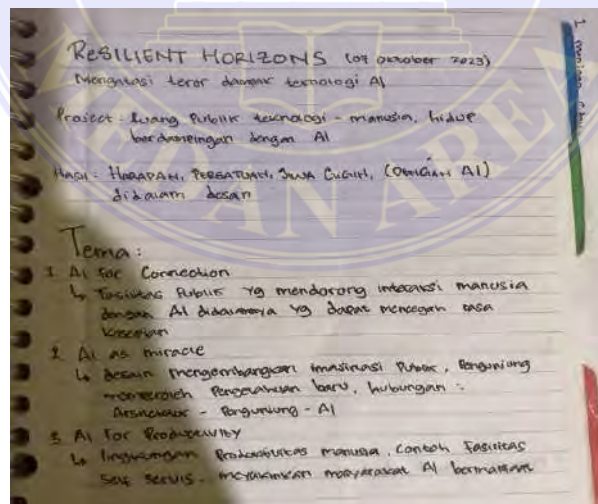 RESILIENT HORIZONS (07 Oktober 2023)
Mengatasi teror dampak teknologi AI
Project - Ruang Publik teknologi - manusia, hidup
berdampingan dengan AI
Hasil : HARAPAN, PERSATUAN, JIWA (AI)
didalam desain
Tema :
1. AI for Connection
↳ Fasilitas Publik yg mendorong interaksi manusia
dengan AI didalamnya yg dapat mencegah rasa
kesepian
2. AI as miracle
↳ desain mengembangkan imajinasi Publik, Pengunjung
memperoleh Pengetahuan baru, hubungan :
Arsitektur - Pengunjung - AI
3. AI For Productivity
↳ lingkungan Produktivitas manusia, contoh Fasilitas
self servis - meyakinkan masyarakat AI bermanfaat
MEDAN AREA